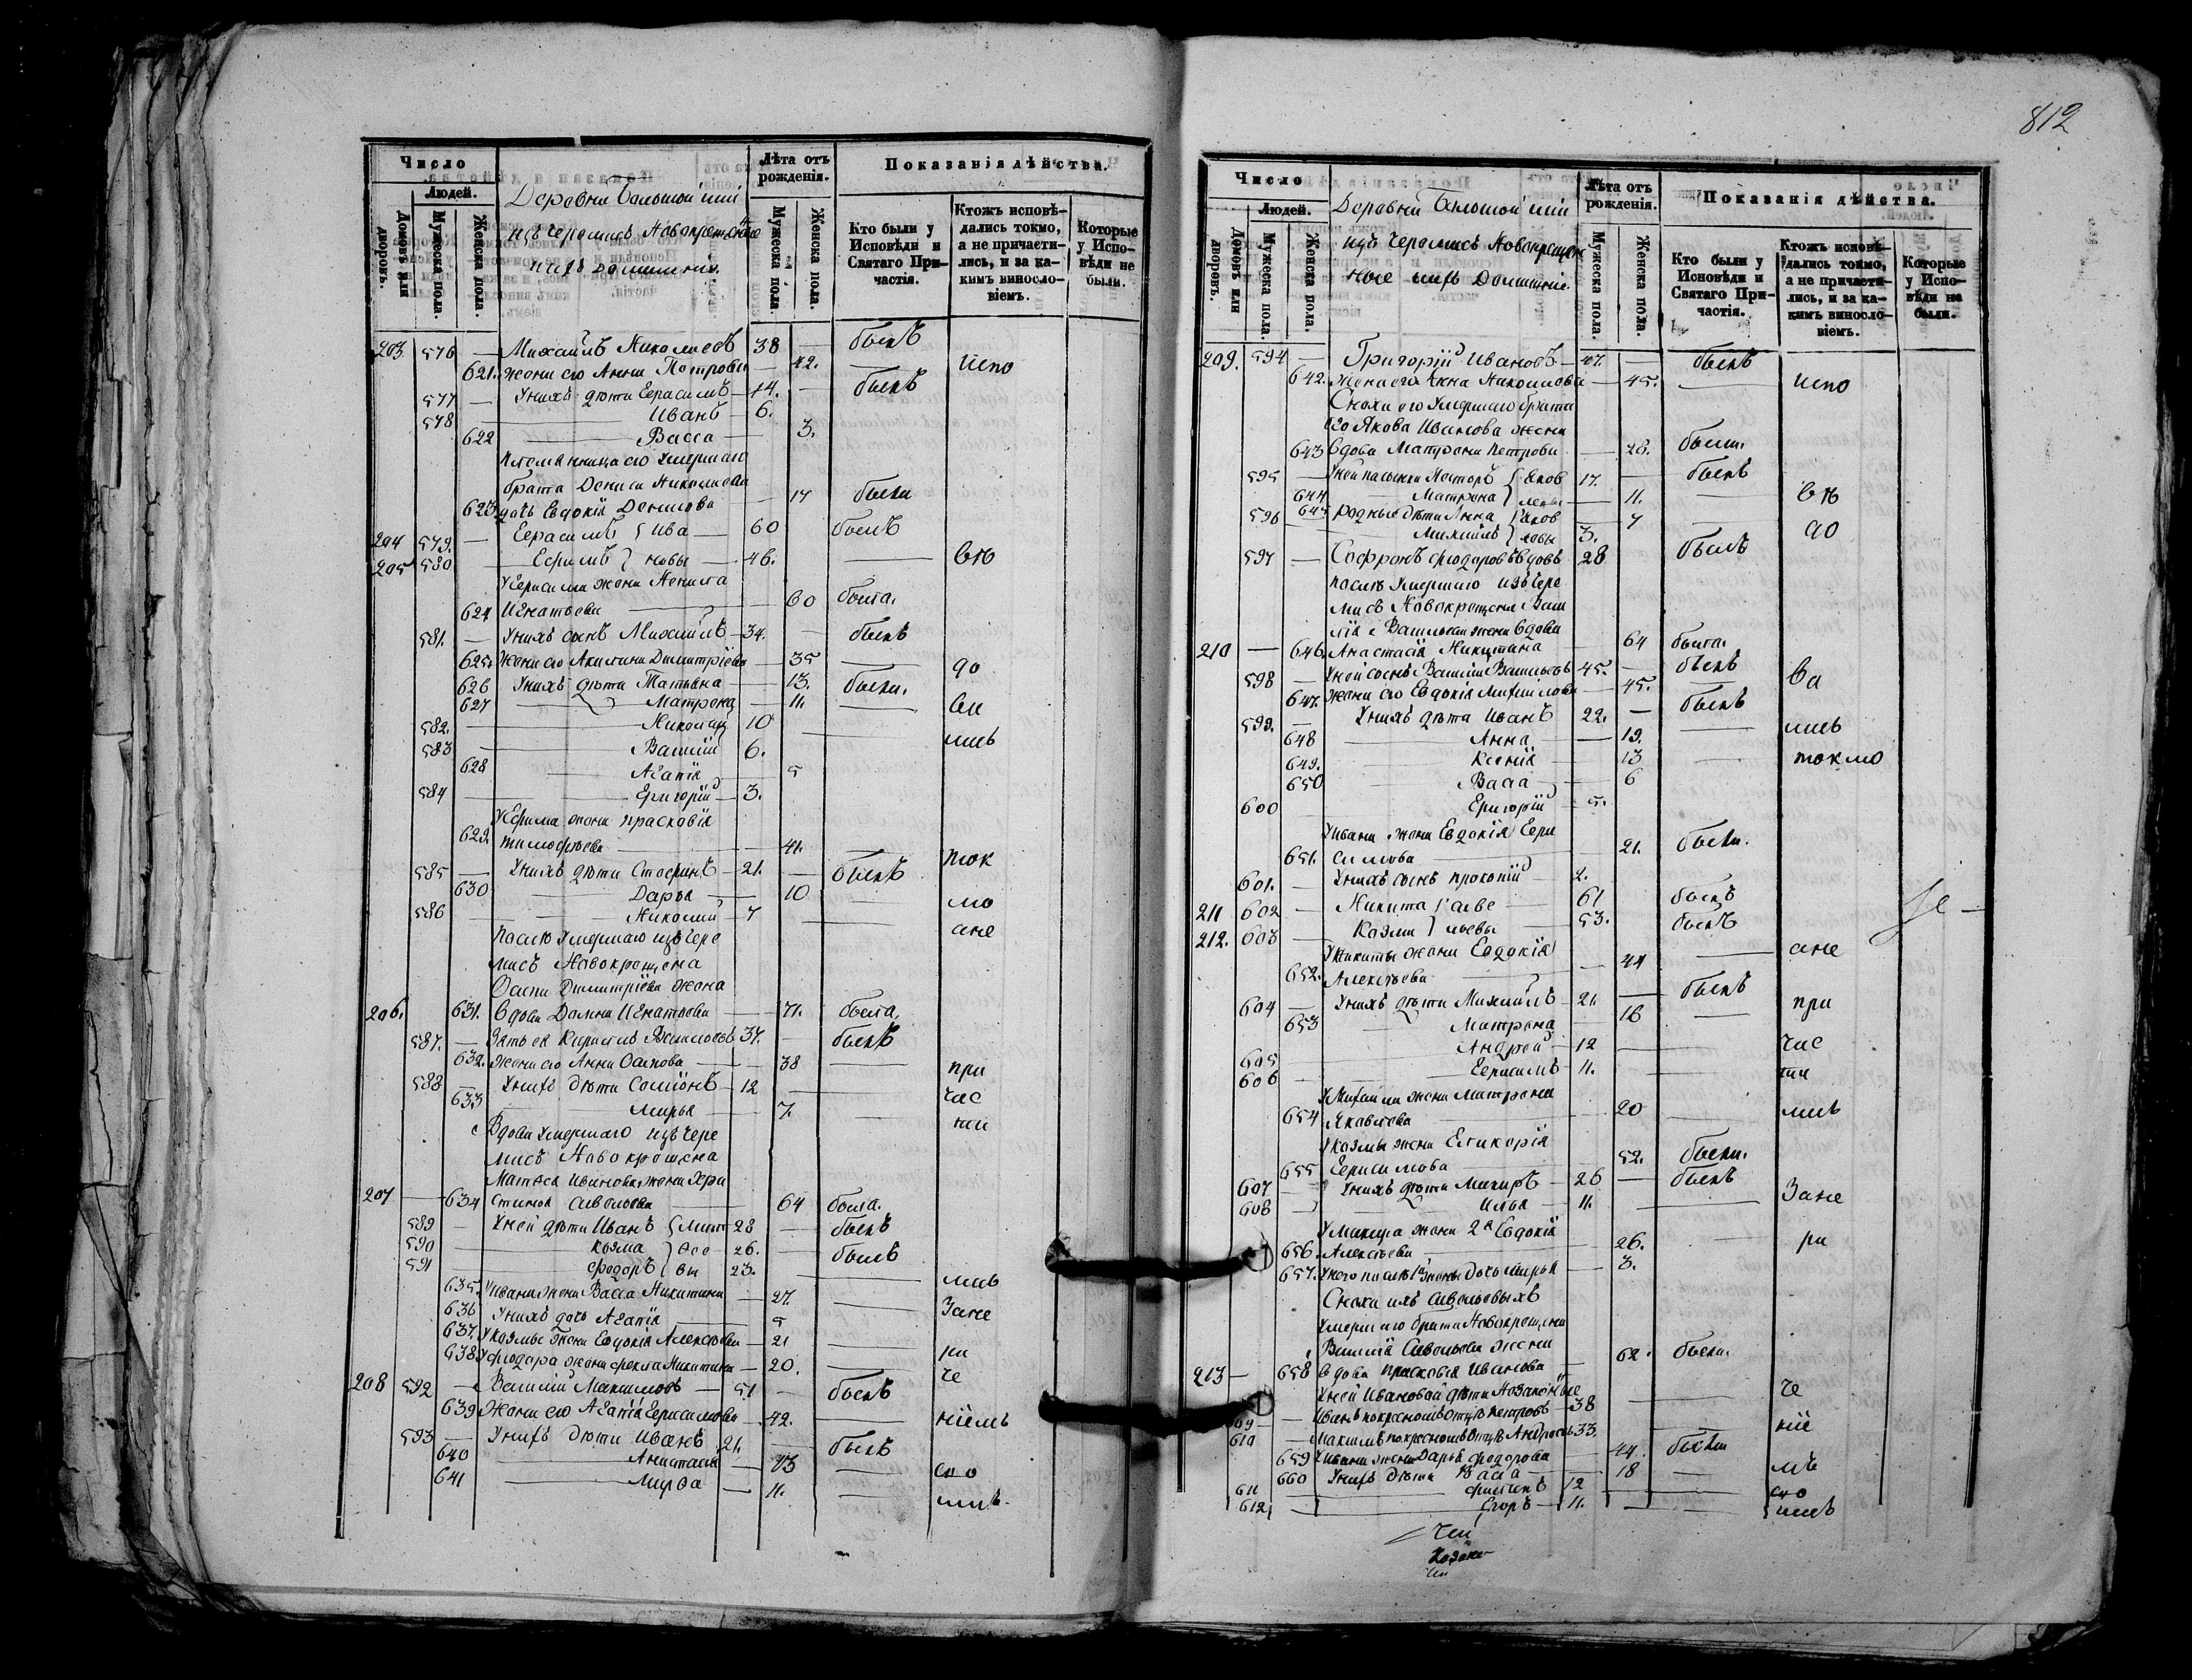 812
Число
Людей.
Домовъ или дворовъ.
Мужеска пола.
Женска пола.
Деревни
изъ Черемисъ Новокрещеные
Лѣта отъ рожденія.
Мужеска пола.
Женска пола.
Показанія дѣйства.
Кто были у Исповѣди и Святаго Причастія.
Ктожъ исповѣдались токмо, а не причастились, и за какимъ винословіемъ.
Которые у Исповѣди не были.
203. 576 — Михаилъ Николаевъ 38 — былъ
621. Жена его Анна Петрова — 42. — испо
577 — У нихъ дѣти Герасимъ — 14. — былъ
578 Иванъ — 6.
622 Васса — 3.
Племянница его умершаго
брата Дениса Николаева
623 дочь Евдокія Денисова — 17 была
204 579. — Герасимъ Ива 60 былъ
205 580 — Ефимъ новы — 46. — вѣ
У Герасима жена Ненила
624 Игнатьева — 60 была.
581. — У нихъ сынъ Михаилъ — 34. — былъ
625. Жена его Акилина Димитріева — 35 — да
626 У нихъ дѣти Татьяна — 13. были.
627 Матрона — 11. — ва
582. Николай 10 — лись
583 Василій 6.
628 Агапія — 5
584 Григорій — 3.
У Ефима жена Прасковія
629. Тимофѣева — 41. — ток
585 — У нихъ дѣти Стефанъ — 21. — былъ
630 Дарья — 10 мо
586 Николай — 7 — ане
Послѣ умершаго изъ Чере
мисъ Новокрещена
Осипа Димитріева жена
206. 631. вдова Домна Игнатьева — 71. была.
587. — Зять ея Кириллъ Васильевъ 37. — былъ
632. Жена его Анна Осипова — 38 — при
588 — У нихъ дѣти Семіонъ — 12 — час
633 Марья — 7. — ти
Вдова умершаго изъ Чере
мисъ Новокрещена
Матвея Иванова жена Хри
207 — 634 стинья Савельева — 64 была.
589 — У ней дѣти Иванъ Мат 28 — былъ
590 Козма 26. — былъ
591 Феодоръ вы 23. — лись
635. У Ивана жена Васса Никитина — 27. — Зане
636 У нихъ дочь Агапія — 5
637. У Козмы жена Евдокія Алексѣева — 21 — ра
638 У Феодора жена Фекла Никитина — 20. — че
208 592 — Василій Максимовъ — 51 — былъ
639 Жена его Агапія Герасимова — 42. — ніемъ
593 — У нихъ дѣти Иванъ 21. — былъ
640 Анастасія — 13 — сво
641 Марѳа — 11. — имъ.
Число
Людей.
Домовъ или дворовъ.
Мужеска пола.
Женска пола.
Деревни
изъ Черемисъ Новокрещен
ные
Лѣта отъ рожденія.
Мужеска пола.
Женска пола.
Показанія дѣйства.
Кто были у Исповѣди и Святаго Причастія.
Ктожъ исповѣдались токмо, а не причастились, и за какимъ винословіемъ.
Которые у Исповѣди не были.
209. 594 — Григорій Ивановъ — 47. — былъ
642. Жена его Анна Николаева — 45. — испо
Сноха его умершаго брата
его Якова Иванова жена
643 вдова Матрона Петрова — 28. была.
595 — У ней пасынки Несторъ Яков 17. — былъ
644 Матрона левы — 11. — вѣ
645 родныя дѣти Анна Яков — 7 — да
596 Михаилъ левы 3.
597 — Софронъ Феодоровъ вдовъ 28 былъ
Послѣ умершаго изъ Чере
мисъ Новокрещена Васи
лія Васильева жена вдова
210 — 646. Анастасія Никитина — 64 была.
598 — У ней сынъ Василій Васильевъ 45. — былъ
647. Жена его Евдокія Михайлова — 45. — ва
599. — У нихъ дѣти Иванъ 22. — былъ
648 Анна — 19. — лись
649. Ксенія — 13 — токмо
650 Васса — 6
600 Григорій — 5.
У Ивана жена Евдокія Гера
651. симова — 21. была.
601. — У нихъ сынъ Прокопій — 2.
211 602 — Никита Саве — 61 былъ
212. 603 — Козма льевы — 53. былъ
У Никиты жена Евдокія
652. Алексѣева — 44 — ане
604 — У нихъ дѣти Михаилъ — 21. — былъ
653 Матрона — 16 — при
605 Андрей — 12 — час
606 Герасимъ — 11. ти
У Михаила жена Матрона
654 Яковлева — 20 — лись
У Козмы жена Гликерія
655 Герасимова — 52. была.
607 — У нихъ дѣти Макаръ — 26 — былъ
608 Илья — 11. — Зане
У Макара жена 2я Евдокія
656. Алексѣева — 26. — ра
657. У него послѣ 1й жены дочь Марья — 3.
Сноха ихъ Савельевыхъ
умершаго брата Новокрещена
Василія Савельева жена
213 — 658 вдова Прасковья Иванова — 62. была.
У ней Ивановой дѣти Незаконные — че
609 — Иванъ по крестномъ отцѣ Петровъ — 38 — ніе
610 — Максимъ по крестномъ отцѣ Андреевъ 33.
659 У Ивана жена Дарья Феодорова — 44. была мъ
660 У нихъ дѣти Васса — 18 — сво
611 Филиппъ 12
612 Егоръ — 11. — имъ